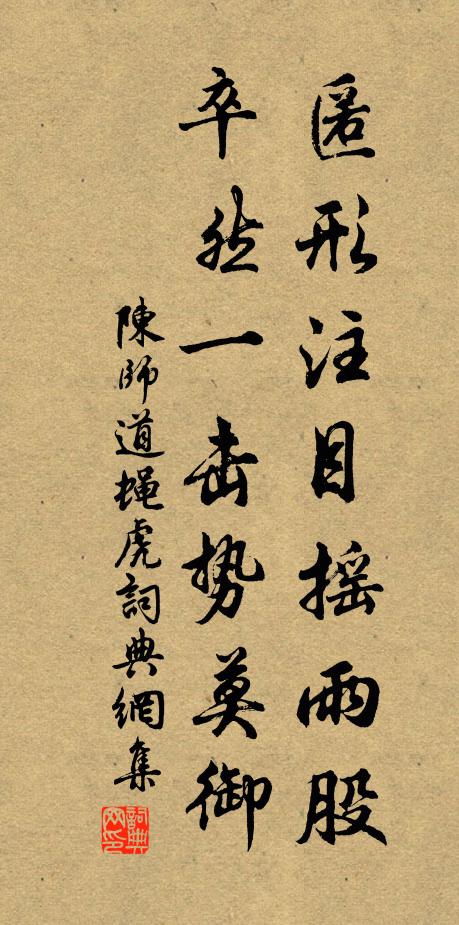 匿形注目摇兩股
卒然一击势莫御
陳師道蝇虎詞典網集
詞典网印